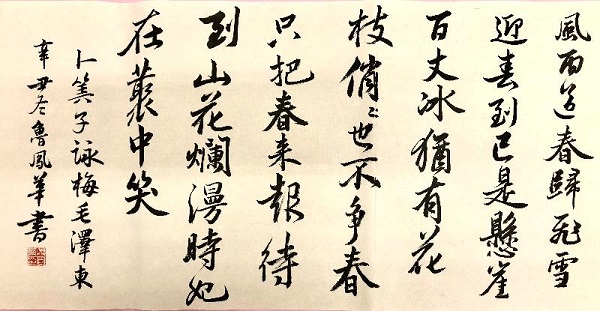 風雨送春歸飛雪
迎春到已是懸崖
百丈冰猶有花
枝俏〻也不争春
只把春来報待
到山花爛漫時她
在叢中笑
卜筭子詠梅毛澤東
辛丑冬魯鳳華書